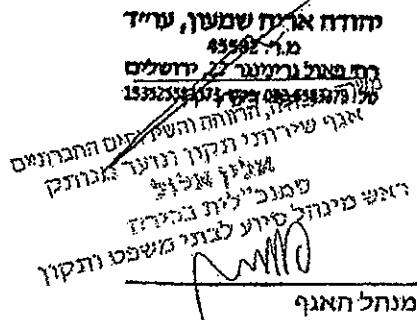 יהודה אריה שמעון, עו״ד
מ.ר. 45502
רח׳ פאול גרינינגר 22 ירושלים
טל׳
הרווחה והשירותים החברתיים
אגף שירותי תקון ונוער מנותק
אלין אלול
סמנכ״לית בכירה
ראש מינהל סיוע לבתי משפט ותקון
מנהל האגף